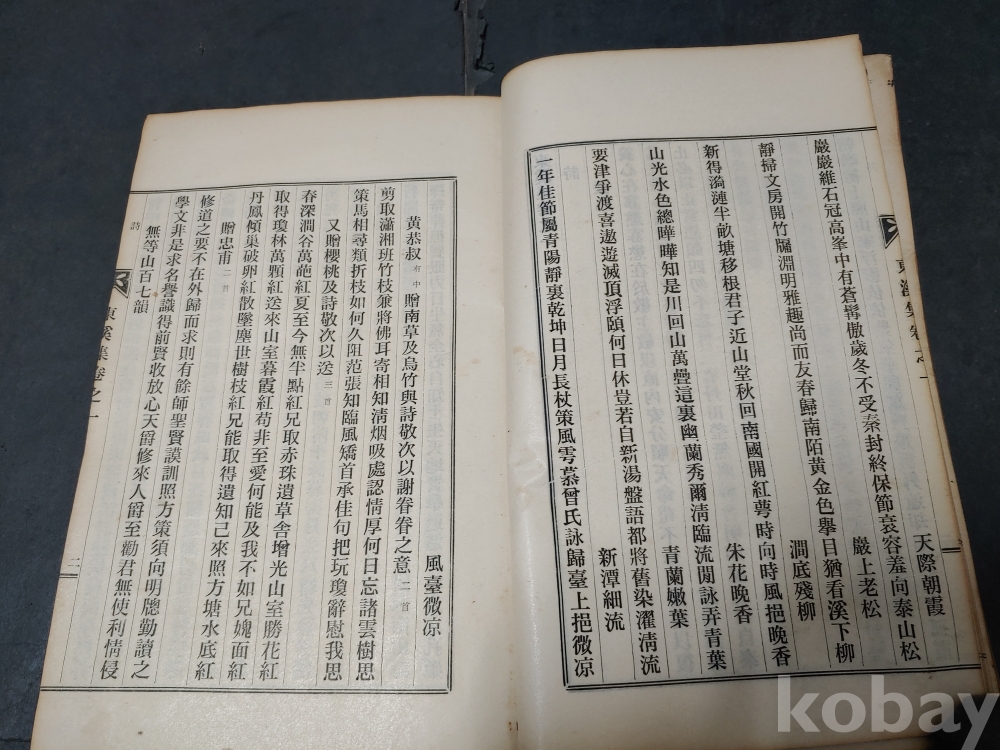 東溪集卷之一
天際朝霞
巖巖維石冠高峯中有蒼髯傲歲冬不受秦封終保節衰容羞向泰山松
巖上老松
靜掃文房開竹牖淵明雅趣尚而友春歸南陌黄金色擧目猶看溪下柳
澗底殘柳
新得漪漣半畝塘移根君子近山堂秋回南國開紅萼時向時風挹晩香
朱花晚香
山光水色總曄曄知是川回山萬疊這裏幽蘭秀爾淸臨流閒詠弄青葉
青蘭嫩葉
要津爭渡喜遨遊滅頂浮頤何日休豈若自新湯盤語都將舊染濯淸流
新潭細流
一年佳節屬青陽靜裏乾坤日月長杖策風雩慕曾氏詠歸臺上挹微凉
風臺微凉
黄恭叔有中贈南草及烏竹與詩敬次以謝眷眷之意二首
剪取瀟湘班竹枝兼將佛耳寄相知淸烟吸處認情厚何日忘諸雲樹思
策馬相尋類折枝如何久阻范張知臨風矯首承佳句把玩瓊辭慰我思
又贈櫻桃及詩敬次以送三首
春深澗谷萬葩紅夏至今無半點紅兄取赤珠遺草舍增光山室勝花紅
取得瓊林萬顆紅送來山室暮霞紅苟非至愛何能及我不如兄媿面紅
丹鳳傾巢破卵紅散墜塵世樹枝紅兄能取得遺知己來照方塘水底紅
贈忠甫二首
修道之要不在外歸而求則有餘師聖賢謨訓照方策須向明牕勤讀之
學文非是求名譽識得前賢收放心天爵修來人爵至勸君無使利情侵
無等山百七韻
詩
東溪集卷之一
二
kobay